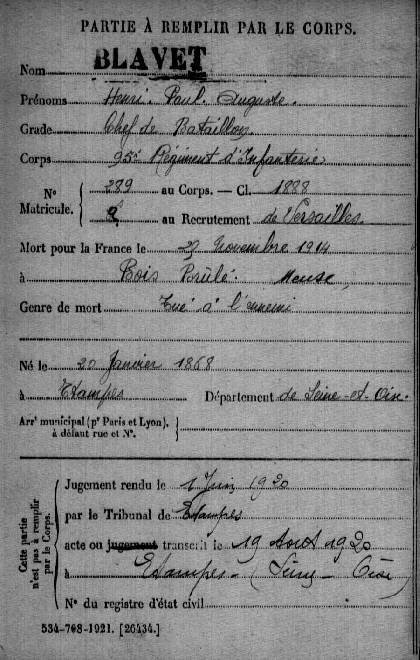 PARTIE À REMPLIR PAR LE CORPS.
Nom BLAVET
Prénoms Henri. Paul. Auguste.
Grade Chef de Bataillon
Corps 95e Régiment d'Infanterie
N° Matricule. 289 au Corps. — Cl. 1888
au Recrutement de Versailles
Mort pour la France le 29 Novembre 1914
à Bois Brûlé. Meuse,
Genre de mort Tué à l'ennemi
Né le 20 Janvier 1868
à Etampes Département de Seine-et-Oise
Arrt municipal (pr Paris et Lyon),
à défaut rue et N°.
Cette partie n'est pas à remplir par le Corps.
Jugement rendu le 1 Juin 1920
par le Tribunal de Etampes
acte ou jugement transcrit le 19 Août 1920
à Etampes - (Seine - Oise)
N° du registre d'état civil
534-708-1921. [26434.]